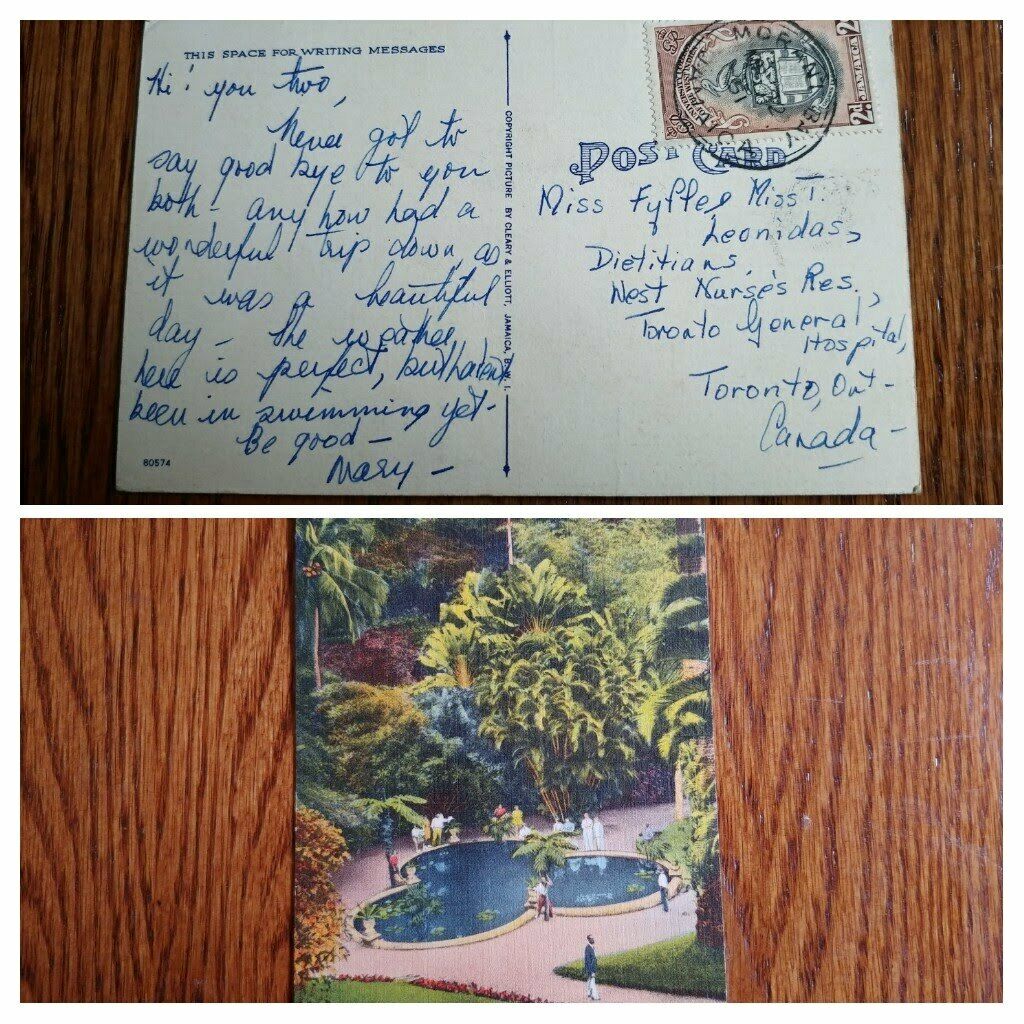 THIS SPACE FOR WRITING MESSAGES
Hi! you two,
Never got to
say good bye to you
both - any how had a
wonderful trip down, as
it was a beautiful
day - the weather
here is perfect, but haven't
been in swimming yet -
Be good -
Mary -
80574
COPYRIGHT PICTURE BY CLEARY & ELLIOTT, JAMAICA, B.W.I.
2d JAMAICA
2d
MORANT BAY
JAMAICA
POST CARD
Miss Fyffe, Miss T.
Leonidas,
Dietitians,
West Nurse's Res.,
Toronto General
Hospital,
Toronto, Ont -
Canada -